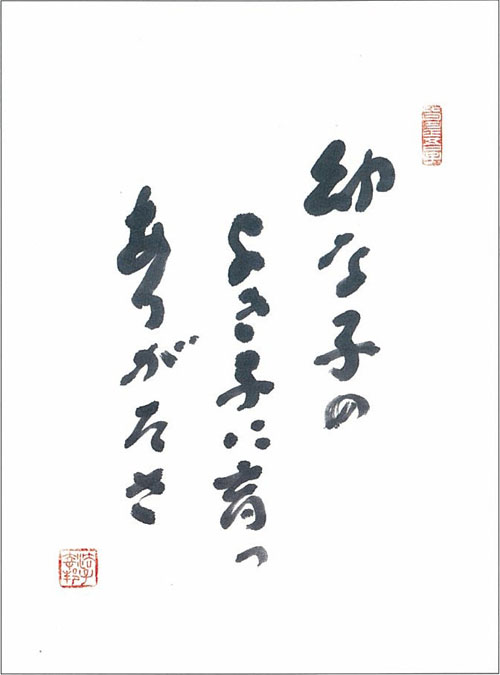 幼な子の
よき子に育つ
ありがたさ